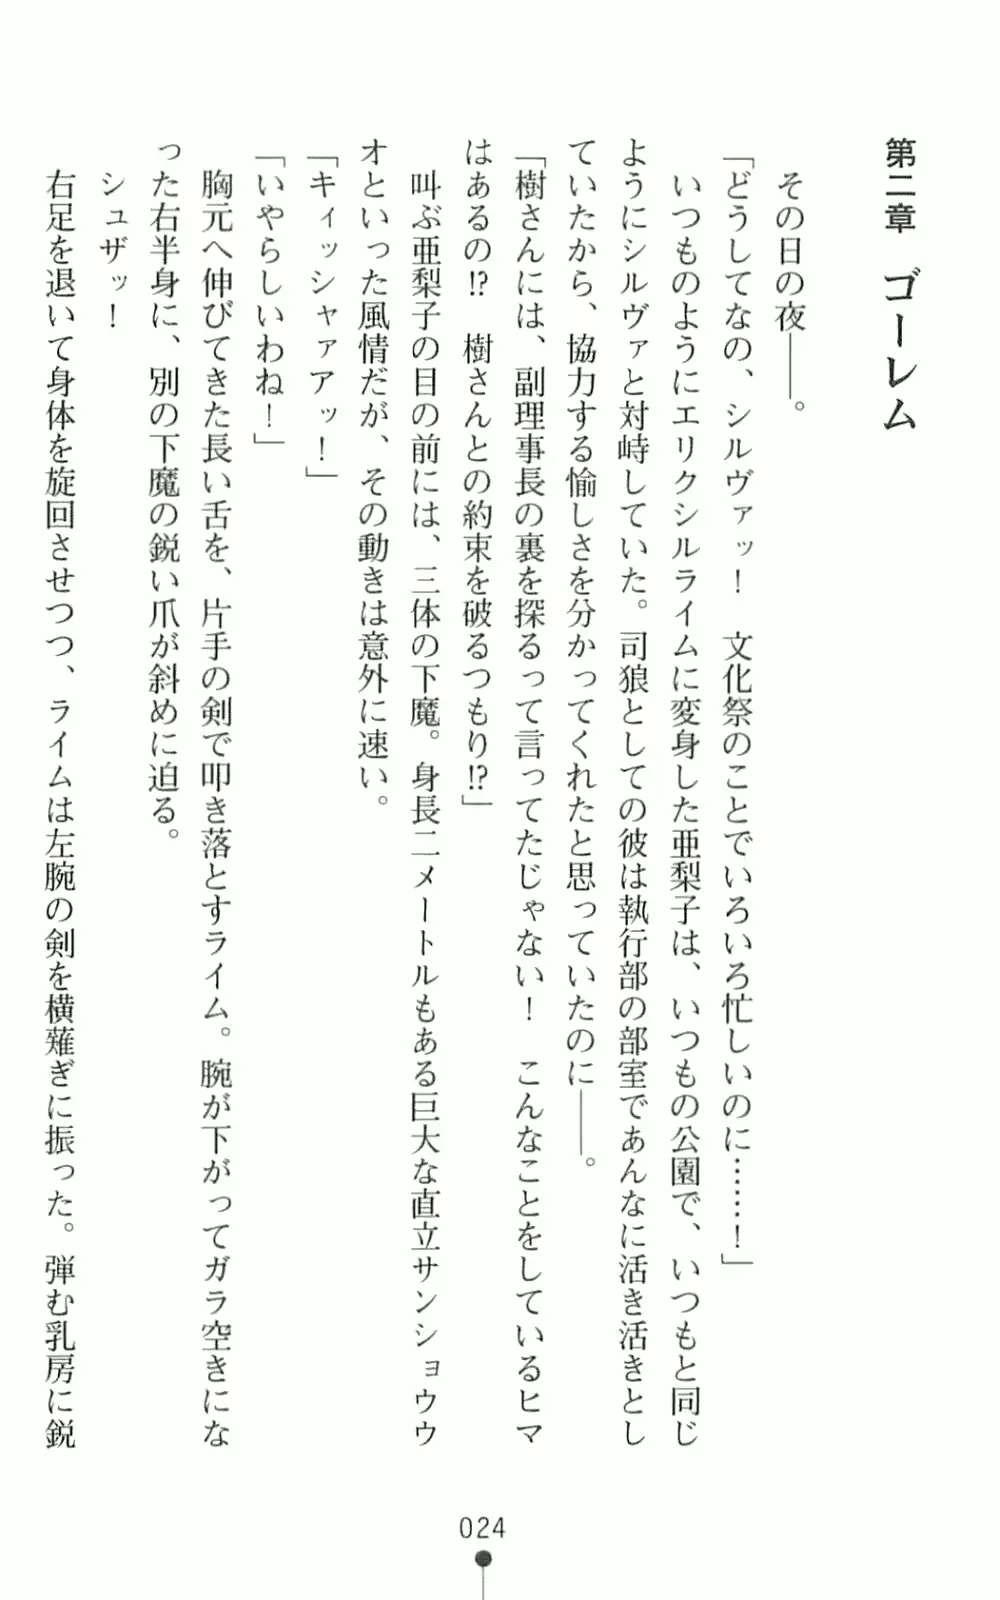 第二章　ゴーレム
　その日の夜――。
「どうしてなの、シルヴァッ！　文化祭のことでいろいろ忙しいのに……！」
　いつものようにエリクシルライムに変身した亜梨子は、いつもの公園で、いつもと同じ
ようにシルヴァと対峙していた。司狼としての彼は執行部の部室であんなに活き活きとし
ていたから、協力する愉しさを分かってくれたと思っていたのに――。
「樹さんには、副理事長の裏を探るって言ってたじゃない！　こんなことをしているヒマ
はあるの!?　樹さんとの約束を破るつもり!?」
　叫ぶ亜梨子の目の前には、三体の下魔。身長二メートルもある巨大な直立サンショウウ
オといった風情だが、その動きは意外に速い。
「キィッシャァアッ！」
「いやらしいわね！」
　胸元へ伸びてきた長い舌を、片手の剣で叩き落とすライム。腕が下がってガラ空きにな
った右半身に、別の下魔の鋭い爪が斜めに迫る。
　シュザッ！
　右足を退いて身体を旋回させつつ、ライムは左腕の剣を横薙ぎに振った。弾む乳房に鋭
024